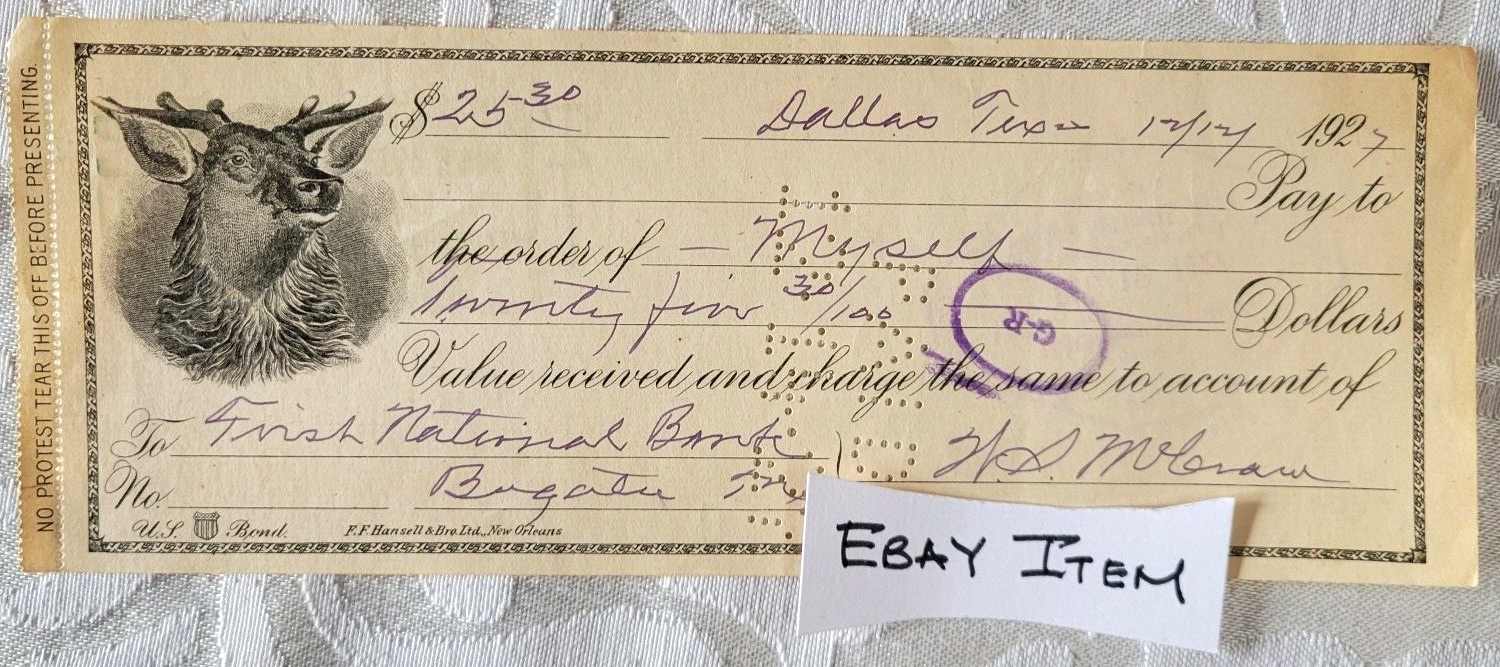 NO PROTEST TEAR THIS OFF BEFORE PRESENTING.
$ 25 30 Dallas Texas 12/12 1927
Pay to
the order of — Myself —
Twenty five 30/100 Dollars
G-R
Value received and charge the same to account of
To First National Bank W.S. McCraw
No. Bogata
U.S. Bond. F.F. Hansell & Bro. Ltd., New Orleans
EBAY ITEM